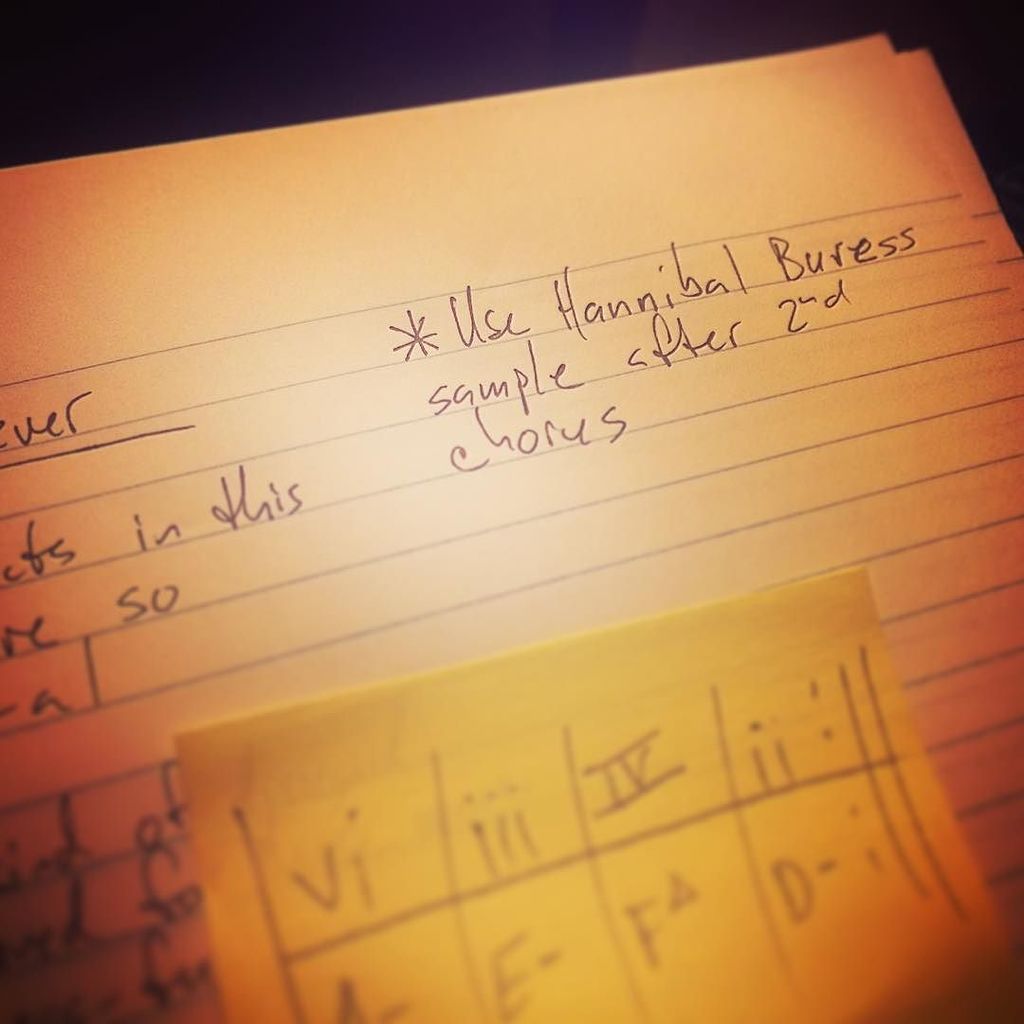 * Use Hannibal Buress
sample after 2nd
chorus
ever
cts in this
re so
-a |
| vi | iii | IV | ii :||
A- | E- | F△ | D- :||